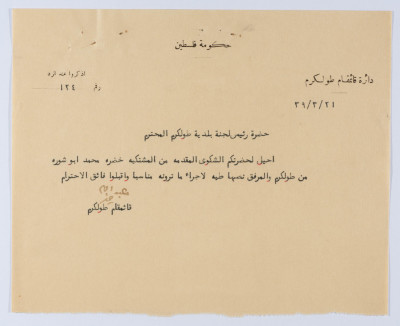 حكومة فلسطين
دائرة قائمقام طولكرم
اذكروا عند الرد
رقم ١٢٤
٣٩/٣/٢١
حضرة رئيس لجنة بلدية طولكرم المحترم
احيل لحضرتكم الشكوى المقدمه من المشتكيه خضره محمد ابو شوره
من طولكرم والمرفق نصها طيه لاجراء ما ترونه مناسبا واقبلوا فائق الاحترام
قائمقام طولكرم